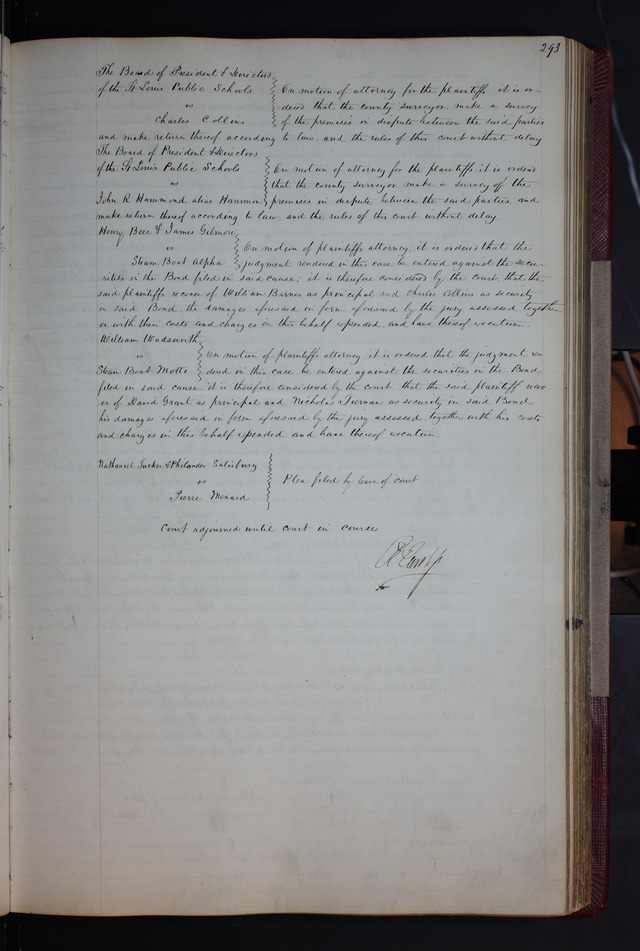 293
The Board of President & Directors
of the St Louis Public Schools
vs
Charles Collins
On motion of attorney for the plaintiffs it is or-
dered that the county surveyor make a survey
of the premises in dispute between the said parties
and make return thereof according to law and the rules of this court without delay
The Board of President & Directors
of the St Louis Public Schools
vs
John R Hammond alias Hammon
On motion of attorney for the plaintiffs it is ordered
that the county surveyor make a survey of the
premises in dispute between the said parties, and
make return thereof according to law, and the rules of this court without delay.
Henry Beer & James Gilmore
vs
Steam Boat Alpha
On motion of plaintiffs attorney, it is ordered that the
judgment rendered in this case be entered against the secu-
rities in the Bond filed in said cause; it is therefore considered by the court that the
said plaintiffs recover of William Barnes as principal and Charles Collins as security
in said Bond the damages aforesaid in form aforesaid by the jury assessed together
with their costs and charges in this behalf expended, and have thereof execution
William Wadsworth
vs
Steam Boat Motto
On motion of plaintiffs attorney it is ordered that the judgment ren
dered in this case be entered against the securities in the Bond
filed in said cause it is therefore considered by the court that the said plaintiff recov
er of David Grant as principal and Nicholas Tiernan as security in said Bond
his damages aforesaid in form aforesaid by the jury assessed together with his costs
and charges in this behalf expended and have thereof execution.
Nathaniel Tucker & Philander Salisbury
vs
Pierre Menard
Plea filed by leave of court
Court adjourned until court in course